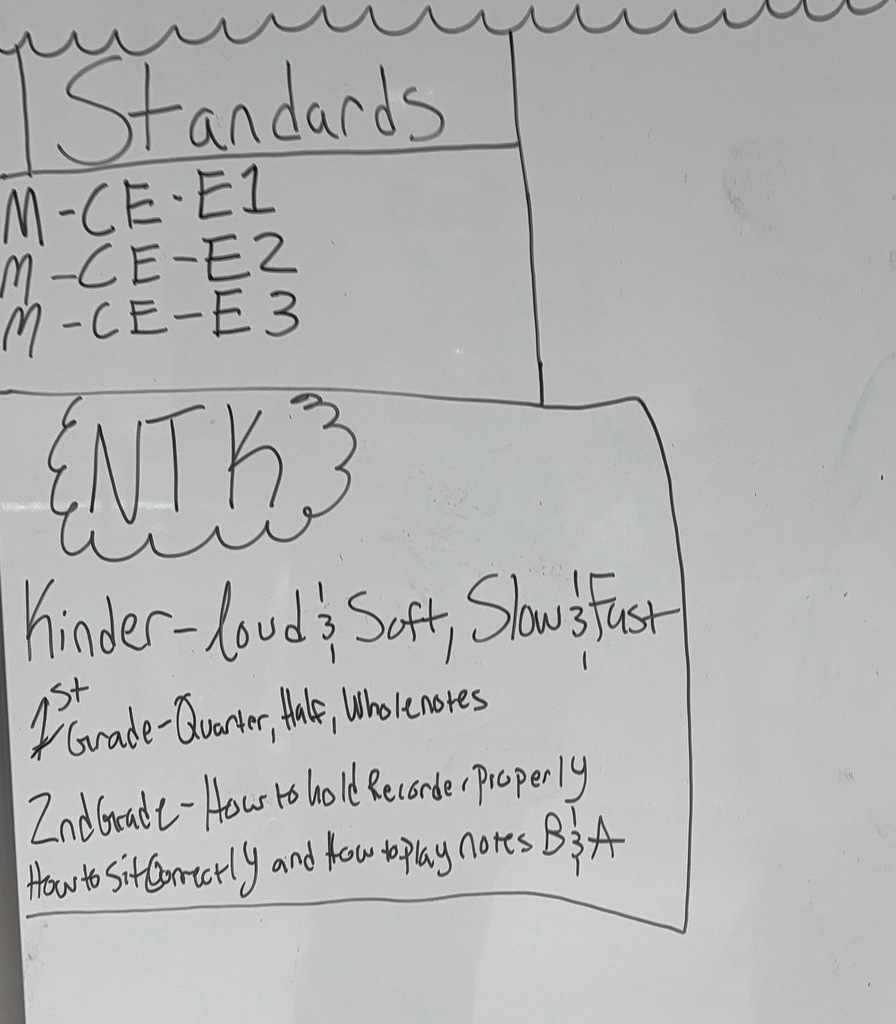 Standards
M-CE-E1
M-CE-E2
M-CE-E3
NTK
Kinder-loud & Soft, Slow & Fast
1st Grade-Quarter, Half, Wholenotes
2nd Grade-How to hold Recorder Properly
How to Sit Correctly and How to play notes B & A